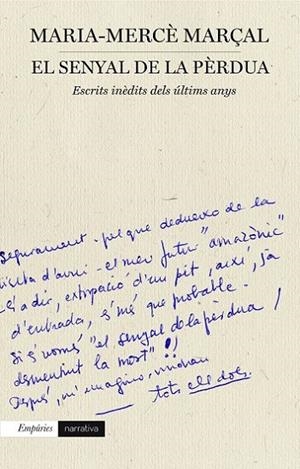 MARIA-MERCÈ MARÇAL
EL SENYAL DE LA PÈRDUA
Escrits inèdits dels últims anys
Segurament -pel que dedueixo de la
visita d'avui- el meu futur "amazònic"
-és a dir, extirpació d'un pit, així, ja
d'entrada, s'més que probable.
Si és només "el senyal de la pèrdua /
desmentint la mort"!!
Després, m'imagino, vindran
tots els dols.
Empúries narrativa